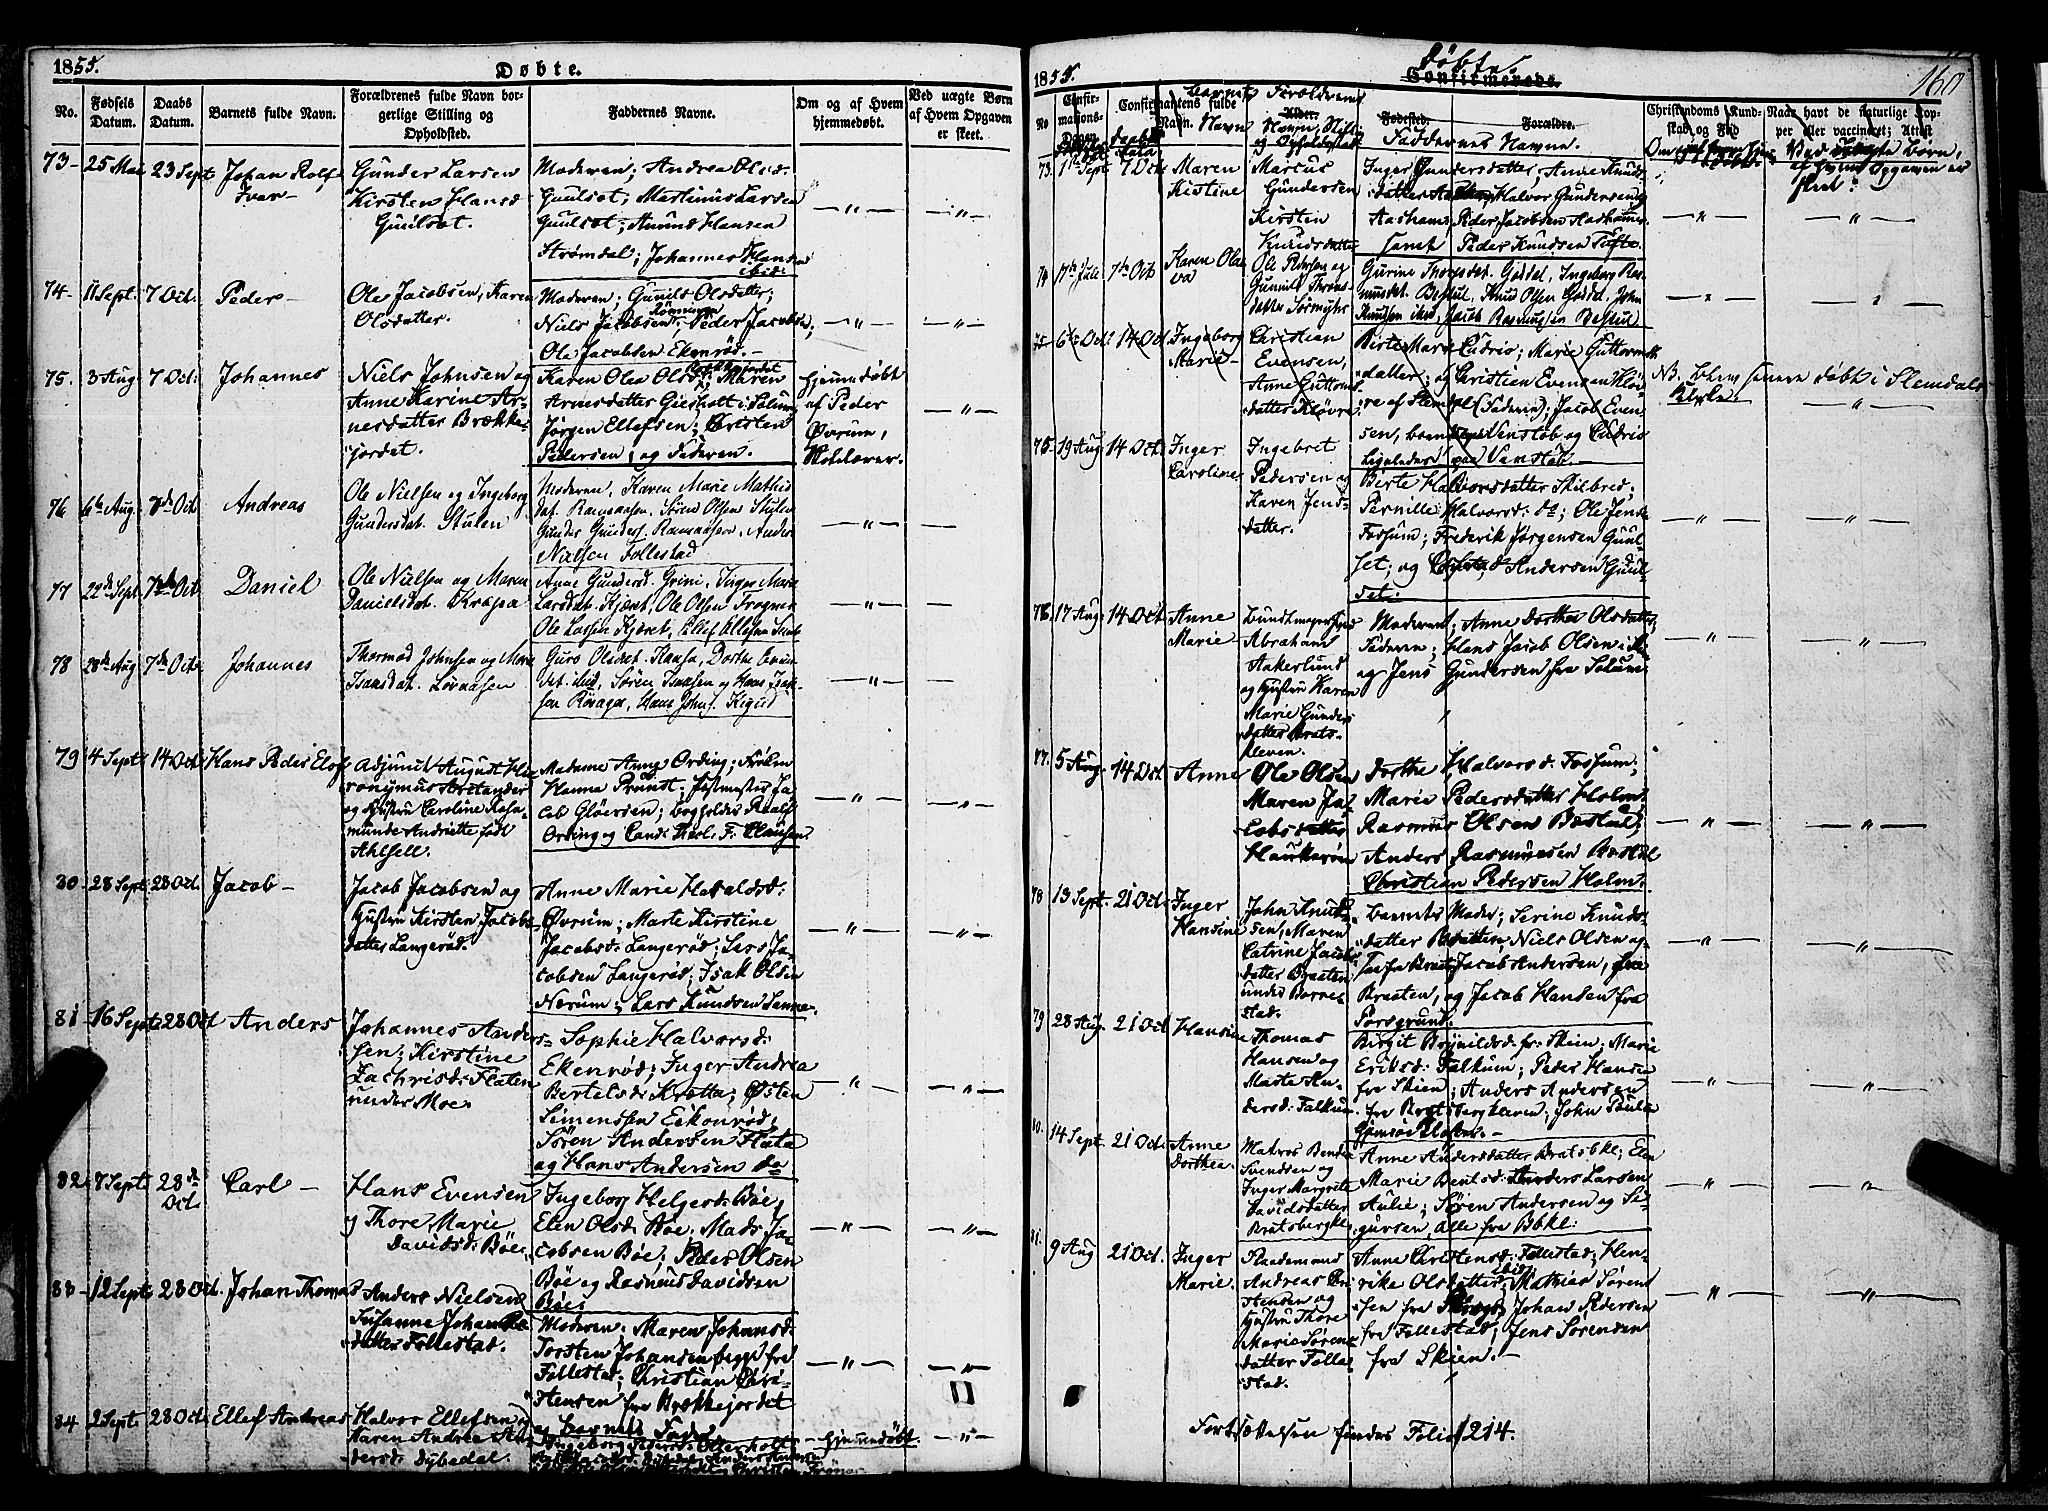 1855.
Døbte.
No.
Fødsels Datum.
Daabs Datum.
Barnets fulde Navn.
Forældrenes fulde Navn borgerlige Stilling og Opholdsted.
Faddernes Navne.
Om og af Hvem hjemmedøbt.
Ved uægte Børn af Hvem Opgaven er skeet.
73- 25 Mai 23 Sept Johan Rolf
Ivar
Gunder Larsen
Kirsten Hansd
Gunlset.
Moderen; Andrea Olsd.
Gunlset; Martinus Larsen
Gunlset; Amund Hansen
Strømdal; Johannes Hansen
ibid.
74- 11 Sept. 7 Oct. Peder-
Ole Jacobsen; Karen
Olsdatter.
Moderen; Gunild Olsdatter;
Niels Jacobsen; Peder Jacobsen,
Ole Jacobsen Ekenrød.-
75. 3 Aug 7 Oct: Johannes
Niels Johnsen og
Anne Karine Arnesdatter Brækkejordet.
Karen Olea Olsd; Maren
Arnesdatter Giesholt i Solum;
Jørgen Ellefsen; Christen
Pedersen; og Faderen.
Hjemmedøbt
af Peder
Øvrum,
76 6te Aug. 7de Oct Andreas
Ole Nielsen og Ingeborg
Gundersdat. Stulen
Moderen, Karen Marie Mathisdat. Ramsaasen, Sören Olsen Stulen
Gunder Gunders. Ramsaasen, Anders
Nielsen Follestad
77 22de Sept 7de Oct Daniel
Ole Nielsen og Maren
Danielsdat. Kraasa
Anne Gundersd. Grini, Inger Marie
Larsdat. Kjæret, Ole Olsen Frogner
Ole Larsen Kjæret,
78 28de Aug 7de Oct Johannes
Thormod Johnsen og Maren
Isaksdat. Løvaasen
Guro Olsdat. Kaasa, Dorthe
Sören Isaksen og Hans Isaksen
79 4 Sept 14 Oct Hans Peder Elof
Adjunct August Hieronymus Arctander
og Hustru Caroline Rosamunde Andriette født
Ahlsell.
Madame Anne Ording; Frøken
Hanna Prunt; Postmester Jacob Gløersen; Bogholder Roald
Ording og Cand: Theol: F. Clausen.
80 28 Sept. 28 Oct. Jacob-
Jacob Jacobsen og
Hustru Kirsten Jacobsdatter Langerød.
Anne Marie Haraldsd:
Øvrum; Marte Kirstine
Jacobsd: Langerød; Lars Jacobsen Langerød; Isak Olsen
Nærum; Lars Knudsen Sanne.
81 16 Sept 28 Oct Anders
Johannes Andersen; Kirstine
Zachrisd: Flaten
under Moe.
Sophie Halvorsd:
Ekenrød; Inger Andrea
Bertelsd: Krotta; Østen
Simensen Eikonrød;
Sören Andersen Flata
og Hans Andersen do
82. 7 Sept 28de Oct. Carl-
Hans Evensen
og Thore Marie
Davidsd: Böe.
Ingeborg Helgesd: Böe;
Elen Olsd: Böe; Mads Jacobsen Böe; Peder Olsen
Böe og Rasmus Davidsen
Böe.
83- 12 Sept 28 Oct. Johan Thomas
Anders Nielsen;
Susanne Johannesdatter Follestad.
Moderen; Maren Johansd:
Torsten Johansen begge fra
Follestad; Christian Christensen fra Brækkejordet
og Barnets Fader
84 2 Sept 28 Oct. Ellef Andreas
Halvor Ellefsen og
Karen Andrea Andersd: Dybedal.
Hjemmedøbt.
1855.
Døbte.
Confirmerede.
160
No
Confirmations-Dagen.
Confirmantens fulde Navn.
Barnets Navn
Forældrenes
Navn, Stilling og Opholdsted
Alder.
Fødested.
Forældre.
Faddernes Navne.
Christendoms Kundskab og Flid
Naar havt de naturlige Kopper eller vaccineret; Attest
Om
Ved uægte Børn,
af hvem Opgaven er
skeet?
73. 1ste Sept 7 Oct Maren
Kistine
Marcus
Gundersen
Kirsten
Knudsdatter
Inger Gundersdatter; Anne Knudsdatter Halvor Gundersen
Aashams Peder Jacobsen Aasham
samt Peder Knudsen Tufte.
74 17de Juli 7de Oct Karen Olava
Ole Pedersen og
Gunild Thronsdatter Sörmyhr
Gurine Thorsdat. Goddal, Ingeborg Rasmusdat. Bestul, Knud Olsen Goddal, John
Knudsen ibid, Jacob Rasmussen Bestul
75 6te Oct 14 Oct Ingeborg
Marie-
Christian
Evensen,
Anne Guttormsdatter Kløvre.
Birte Marie Cudrio; Marie Guttormsdatter; og Christian Evensen Kløvre af Slemdal (Faderen); Jacob Evensen, Venstøb og Cudrio
Ligeledes paa Venstøb.-
NB. Blev senere døbt i Slemdals
Kirke.
75- 19 Aug 14 Oct. Inger
Caroline
Ingebret
Pedersen og
Karen Jensdatter.
Berte Halvorsdatter Skilbred;
Pernille Halvorsd: do; Ole Jensen
Fossum; Frederik Jørgensen Gunlset; og Andersen Gunlset.
76. 17 Aug. 14 Oct. Anne
Marie
Bundtmagersvend
Abraham
Aakerlund
og Hustru Karen
Marie Gundersdatter Bratskleven.
Moderen; Anne Dorthea Olsdatter;
Faderen; Hans Jacob Olsen i
og Jens Gundersen fra Solum.
77. 5 Aug. 14 Oct. Anne
Ole Olsen
Maren Jacobsdatter
Haukerøn
Dorthe Halvorsd: Fossum;
Marie Pedersdatter Holm.
Rasmus Olsen Bestul;
Anders Rasmussen Bestul
Christian Pedersen Holm.
78 13 Sept. 21 Oct. Inger
Hansine
John Knudsen, Maren
Catrine Jacobsdatter Braaten
under Borrestad.
Barnets Moder; Serine Knudsdatter Braaten, Niels Olsen
Jacob Andersen,
Braaten, og Jacob Hansen fra
Porsgrund.
79 28 Aug. 21 Oct Hansine
Thomas
Hansen og
Marte Andersd: Falkum.
Birgit Brynildsd: fr: Skien; Marie
Eriksd: Falkum; Peder Hansen
fra Skien; Anders Andersen
fra Bratsbergkleven; John Paulsen
Gjemsø Kloster.-
80. 14 Sept. 21 Oct. Anne
Dorthea.
Matros Bendt
Svendsen og
Inger Margrete
Davidsdatter
Bratsbergkl.
Anne Andersdatter Bratsbkl; Elen
Marie Bentsd: Anders Larsen
Aulie; Sören Andersen og Sigursen, alle fra Bbkl:
81. 9 Aug 21 Oct. Inger
Marie.
Andreas Christensen og
Hustru Thore
Marie Sørensdatter Follestad.
Anne Christensd: Follestad; Henrike Olsdatter ibid; Mathias Sørensen fra Johan Pedersen
fra Follestad; Jens Sørensen
fra Skien.-
Fortsættelsen findes Folio 214.